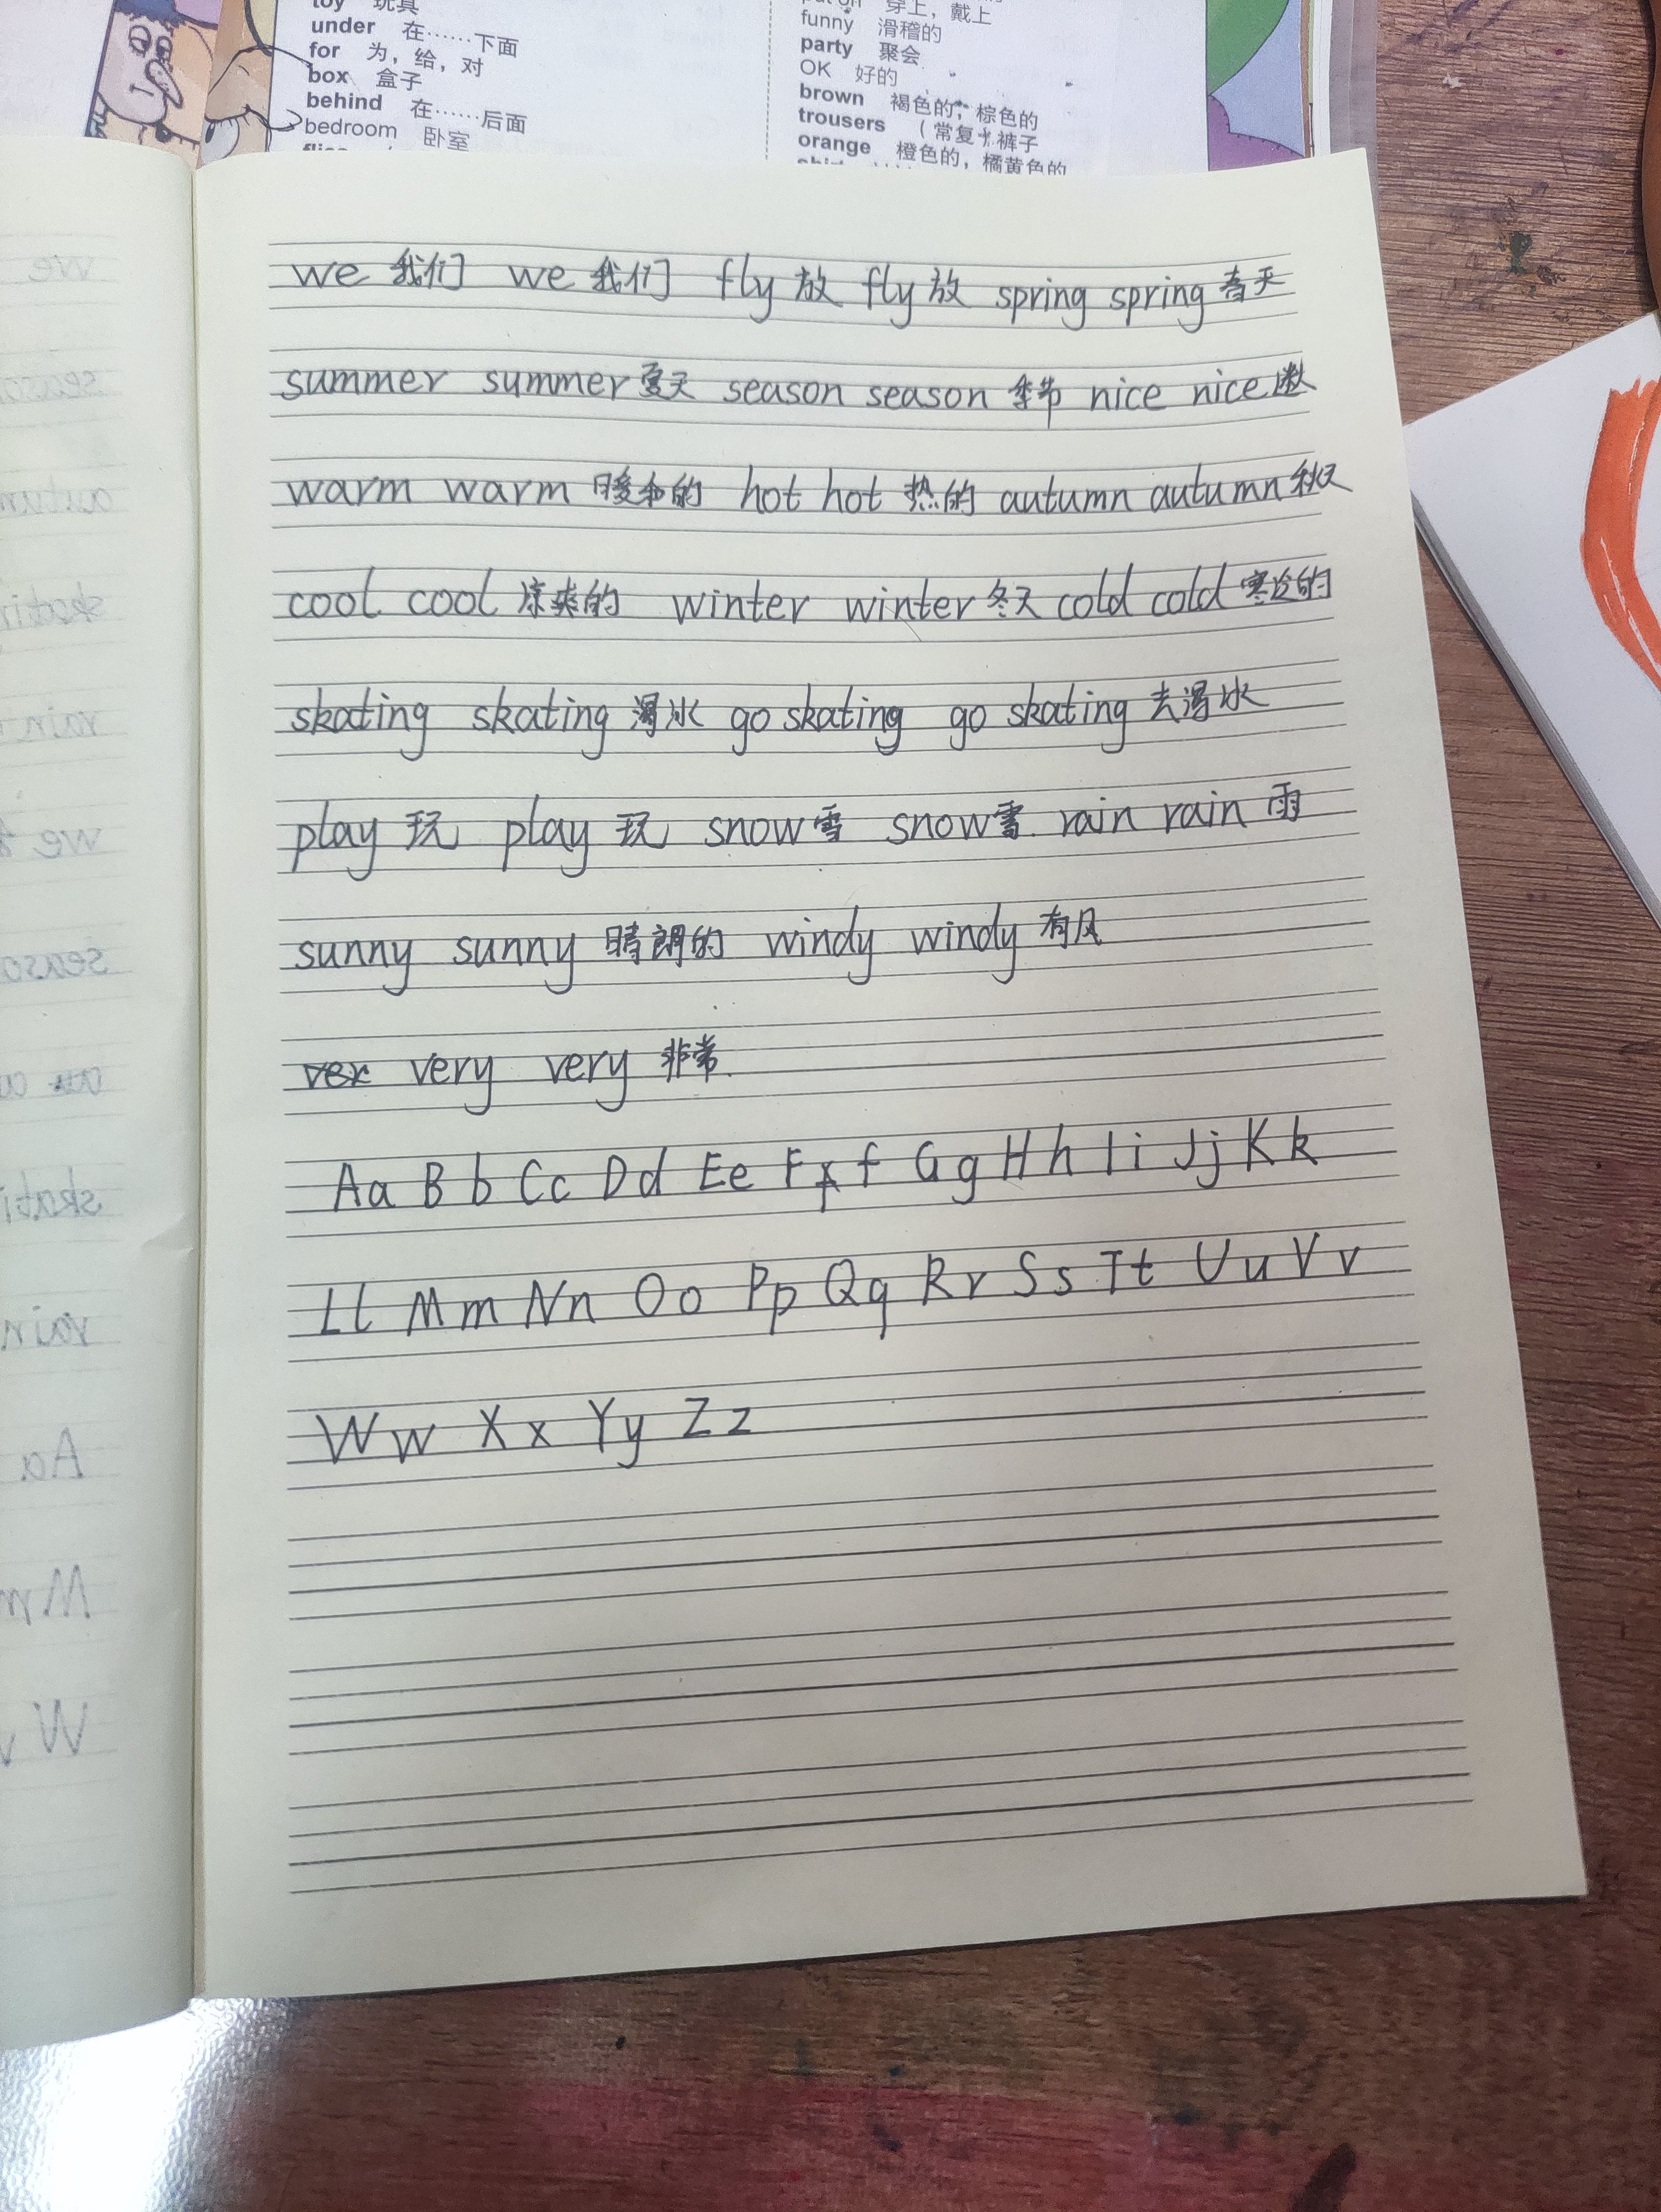 toy 玩具
under 在……下面
for 为，给，对
box 盒子
behind 在……后面
bedroom 卧室
穿上，戴上
funny 滑稽的
party 聚会
OK 好的
brown 褐色的，棕色的
trousers （常复）裤子
orange 橙色的，橘黄色的
we 我们 we 我们 fly 放 fly 放 spring spring 春天
summer summer 夏天 season season 季节 nice nice
warm warm 暖和的 hot hot 热的 autumn autumn 秋天
cool cool 凉爽的 winter winter 冬天 cold cold 寒冷的
skating skating 滑冰 go skating go skating 去滑冰
play 玩 play 玩 snow 雪 snow 雪 rain rain 雨
sunny sunny 晴朗的 windy windy 有风
very very 非常
Aa Bb Cc Dd Ee F f Gg Hh Ii Jj Kk
Ll Mm Nn Oo Pp Qq Rr Ss Tt Uu Vv
Ww Xx Yy Zz